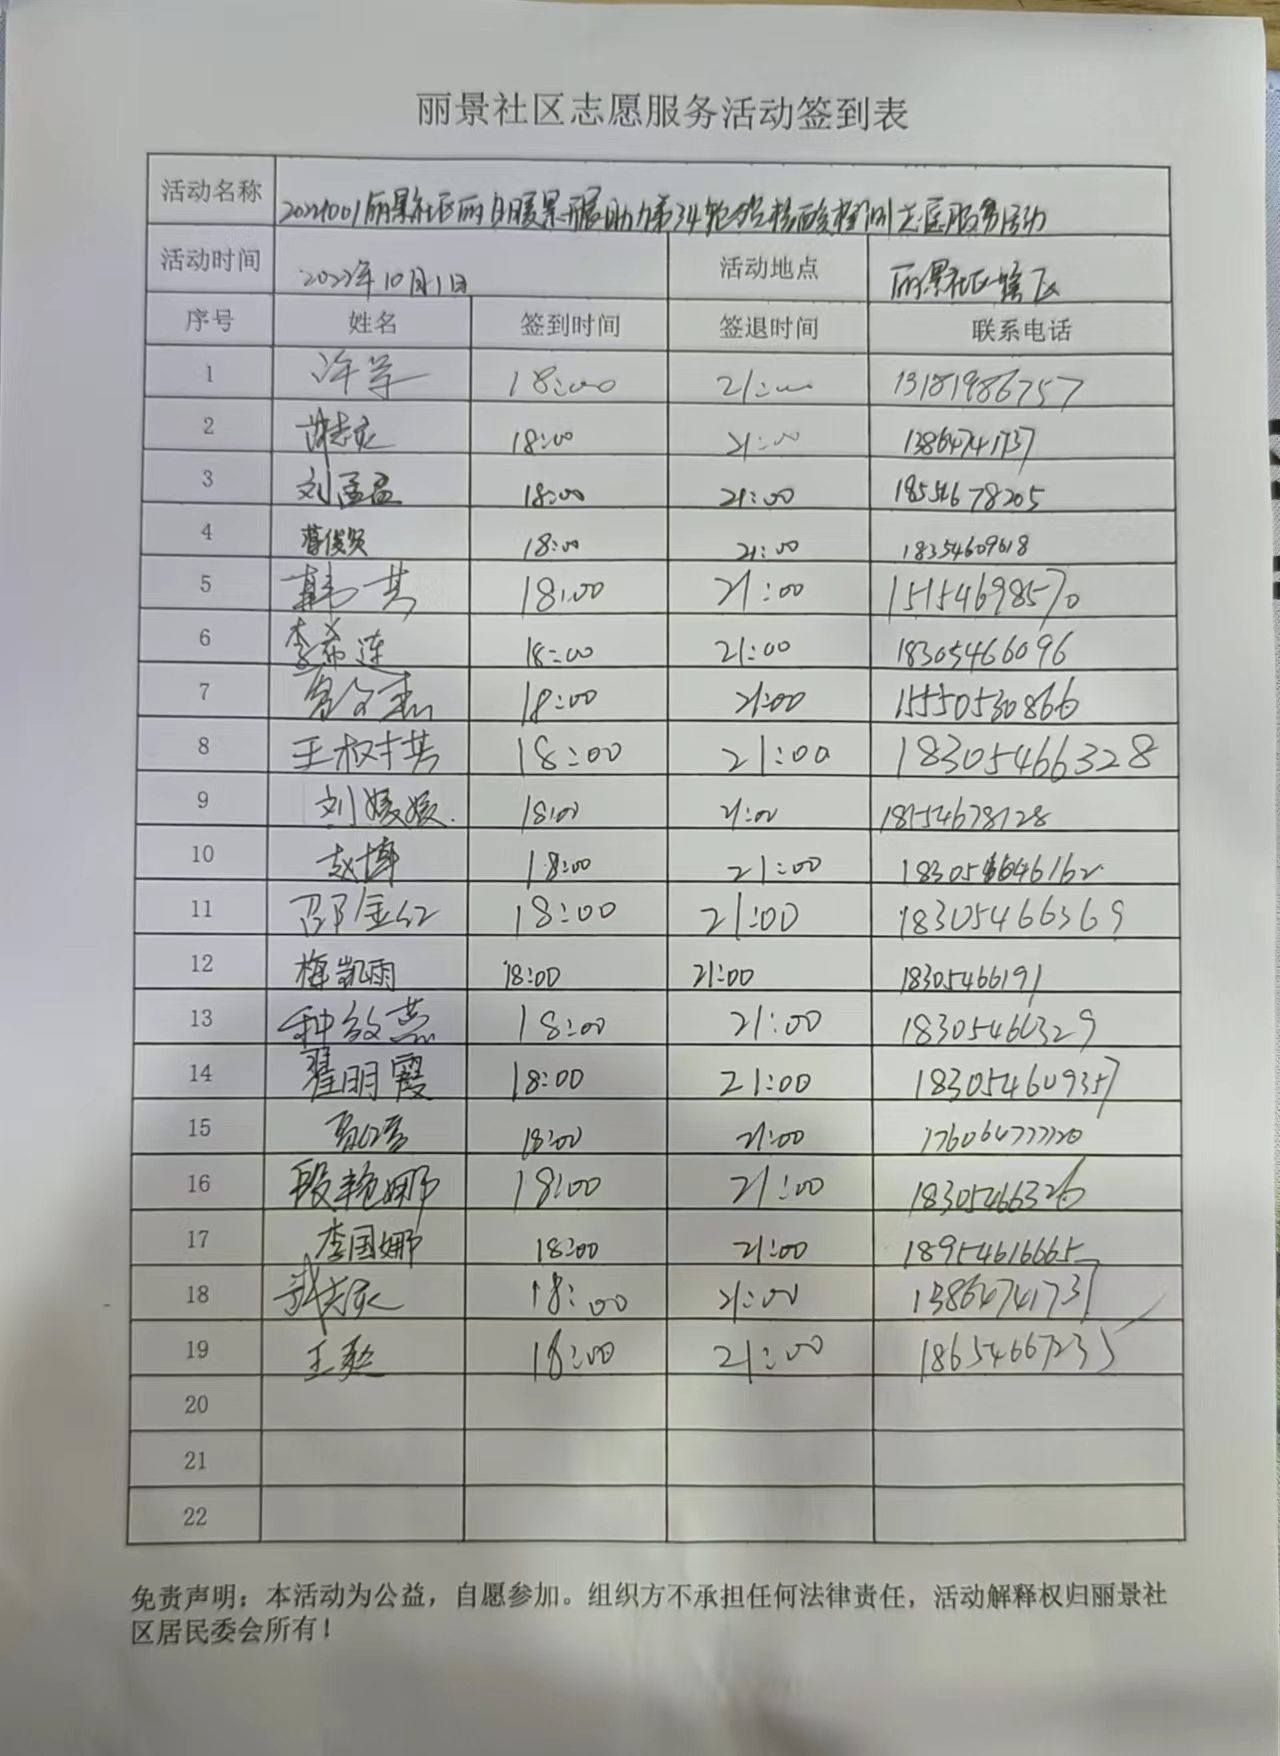 丽景社区志愿服务活动签到表
活动名称 20221001丽景社区丽日暖景开展助力第34轮全员核酸检测志愿服务活动
活动时间 2022年10月1日 活动地点 丽景社区辖区
序号 姓名 签到时间 签退时间 联系电话
1 许学 18:00 21:00 13181986757
2 18:00 21:00 13864741737
3 刘孟孟 18:00 21:00 18554678205
4 蒋俊贤 18:00 21:00 18354609618
5 韩芸 18:00 21:00 15154698570
6 李希莲 18:00 21:00 18305466096
7 18:00 21:00 15550530866
8 王树芸 18:00 21:00 18305466328
9 刘媛媛 18:00 21:00 18554678128
10 赵博 18:00 21:00
11 邵金红 18:00 21:00 18305466369
12 梅凯雨 18:00 21:00 18305466191
13 种效燕 18:00 21:00 18305466329
14 翟明霞 18:00 21:00 18305460957
15 18:00 21:00 17606477720
16 段艳娜 18:00 21:00 18305466326
17 李国娜 18:00 21:00 18954616665
18 18:00 21:00 13864741737
19 18:00 21:00 18654667235
20
21
22
免责声明：本活动为公益，自愿参加。组织方不承担任何法律责任，活动解释权归丽景社
区居民委会所有！